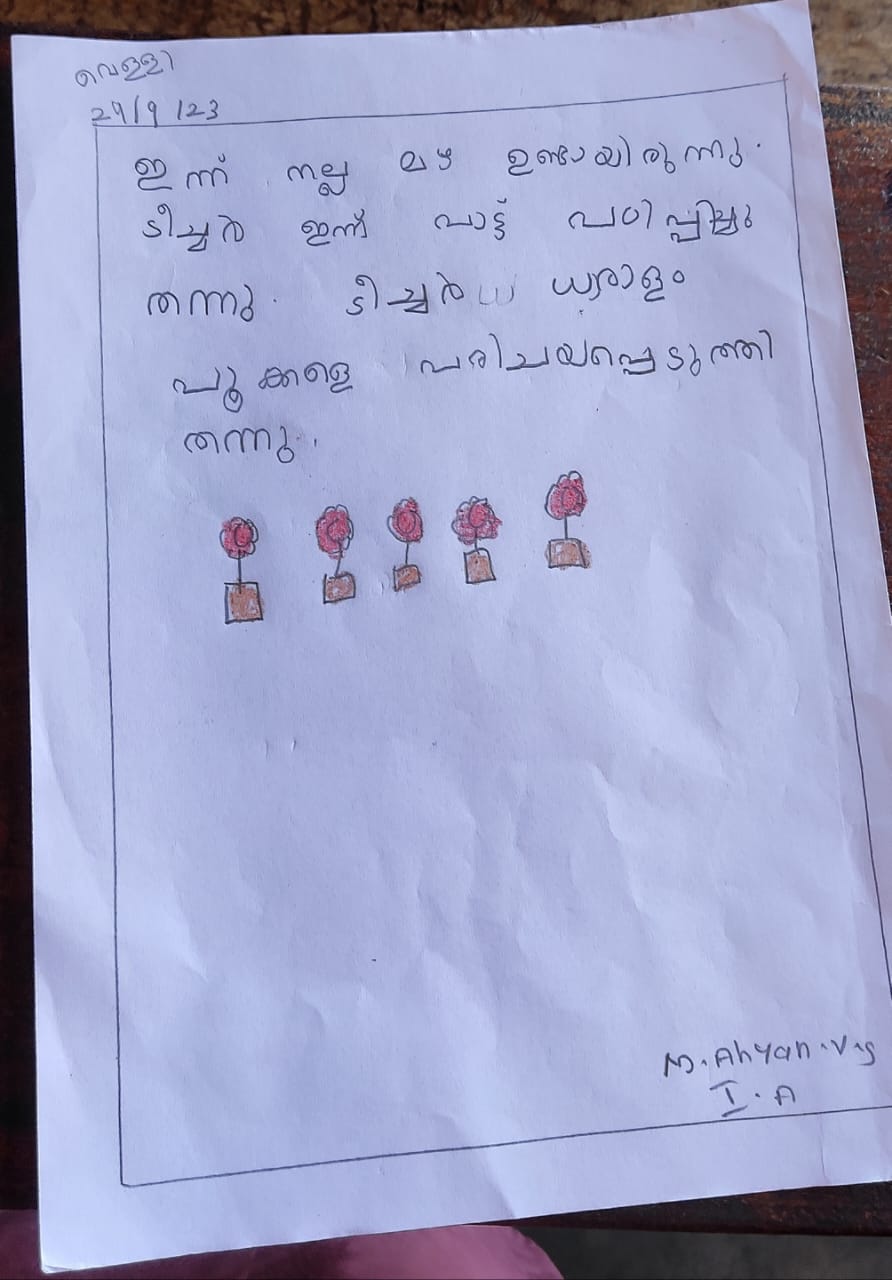 വെള്ളി
29/9/23
ഇന്ന് നല്ല മഴ ഉണ്ടായിരുന്നു.
ടീച്ചർ ഇന്ന് പാട്ട് പഠിപ്പിച്ചു
തന്നു. ടീച്ചർ ധാരാളം
പൂക്കളെ പരിചയപ്പെടുത്തി
തന്നു.
M. Ahyan. V.S
I. A